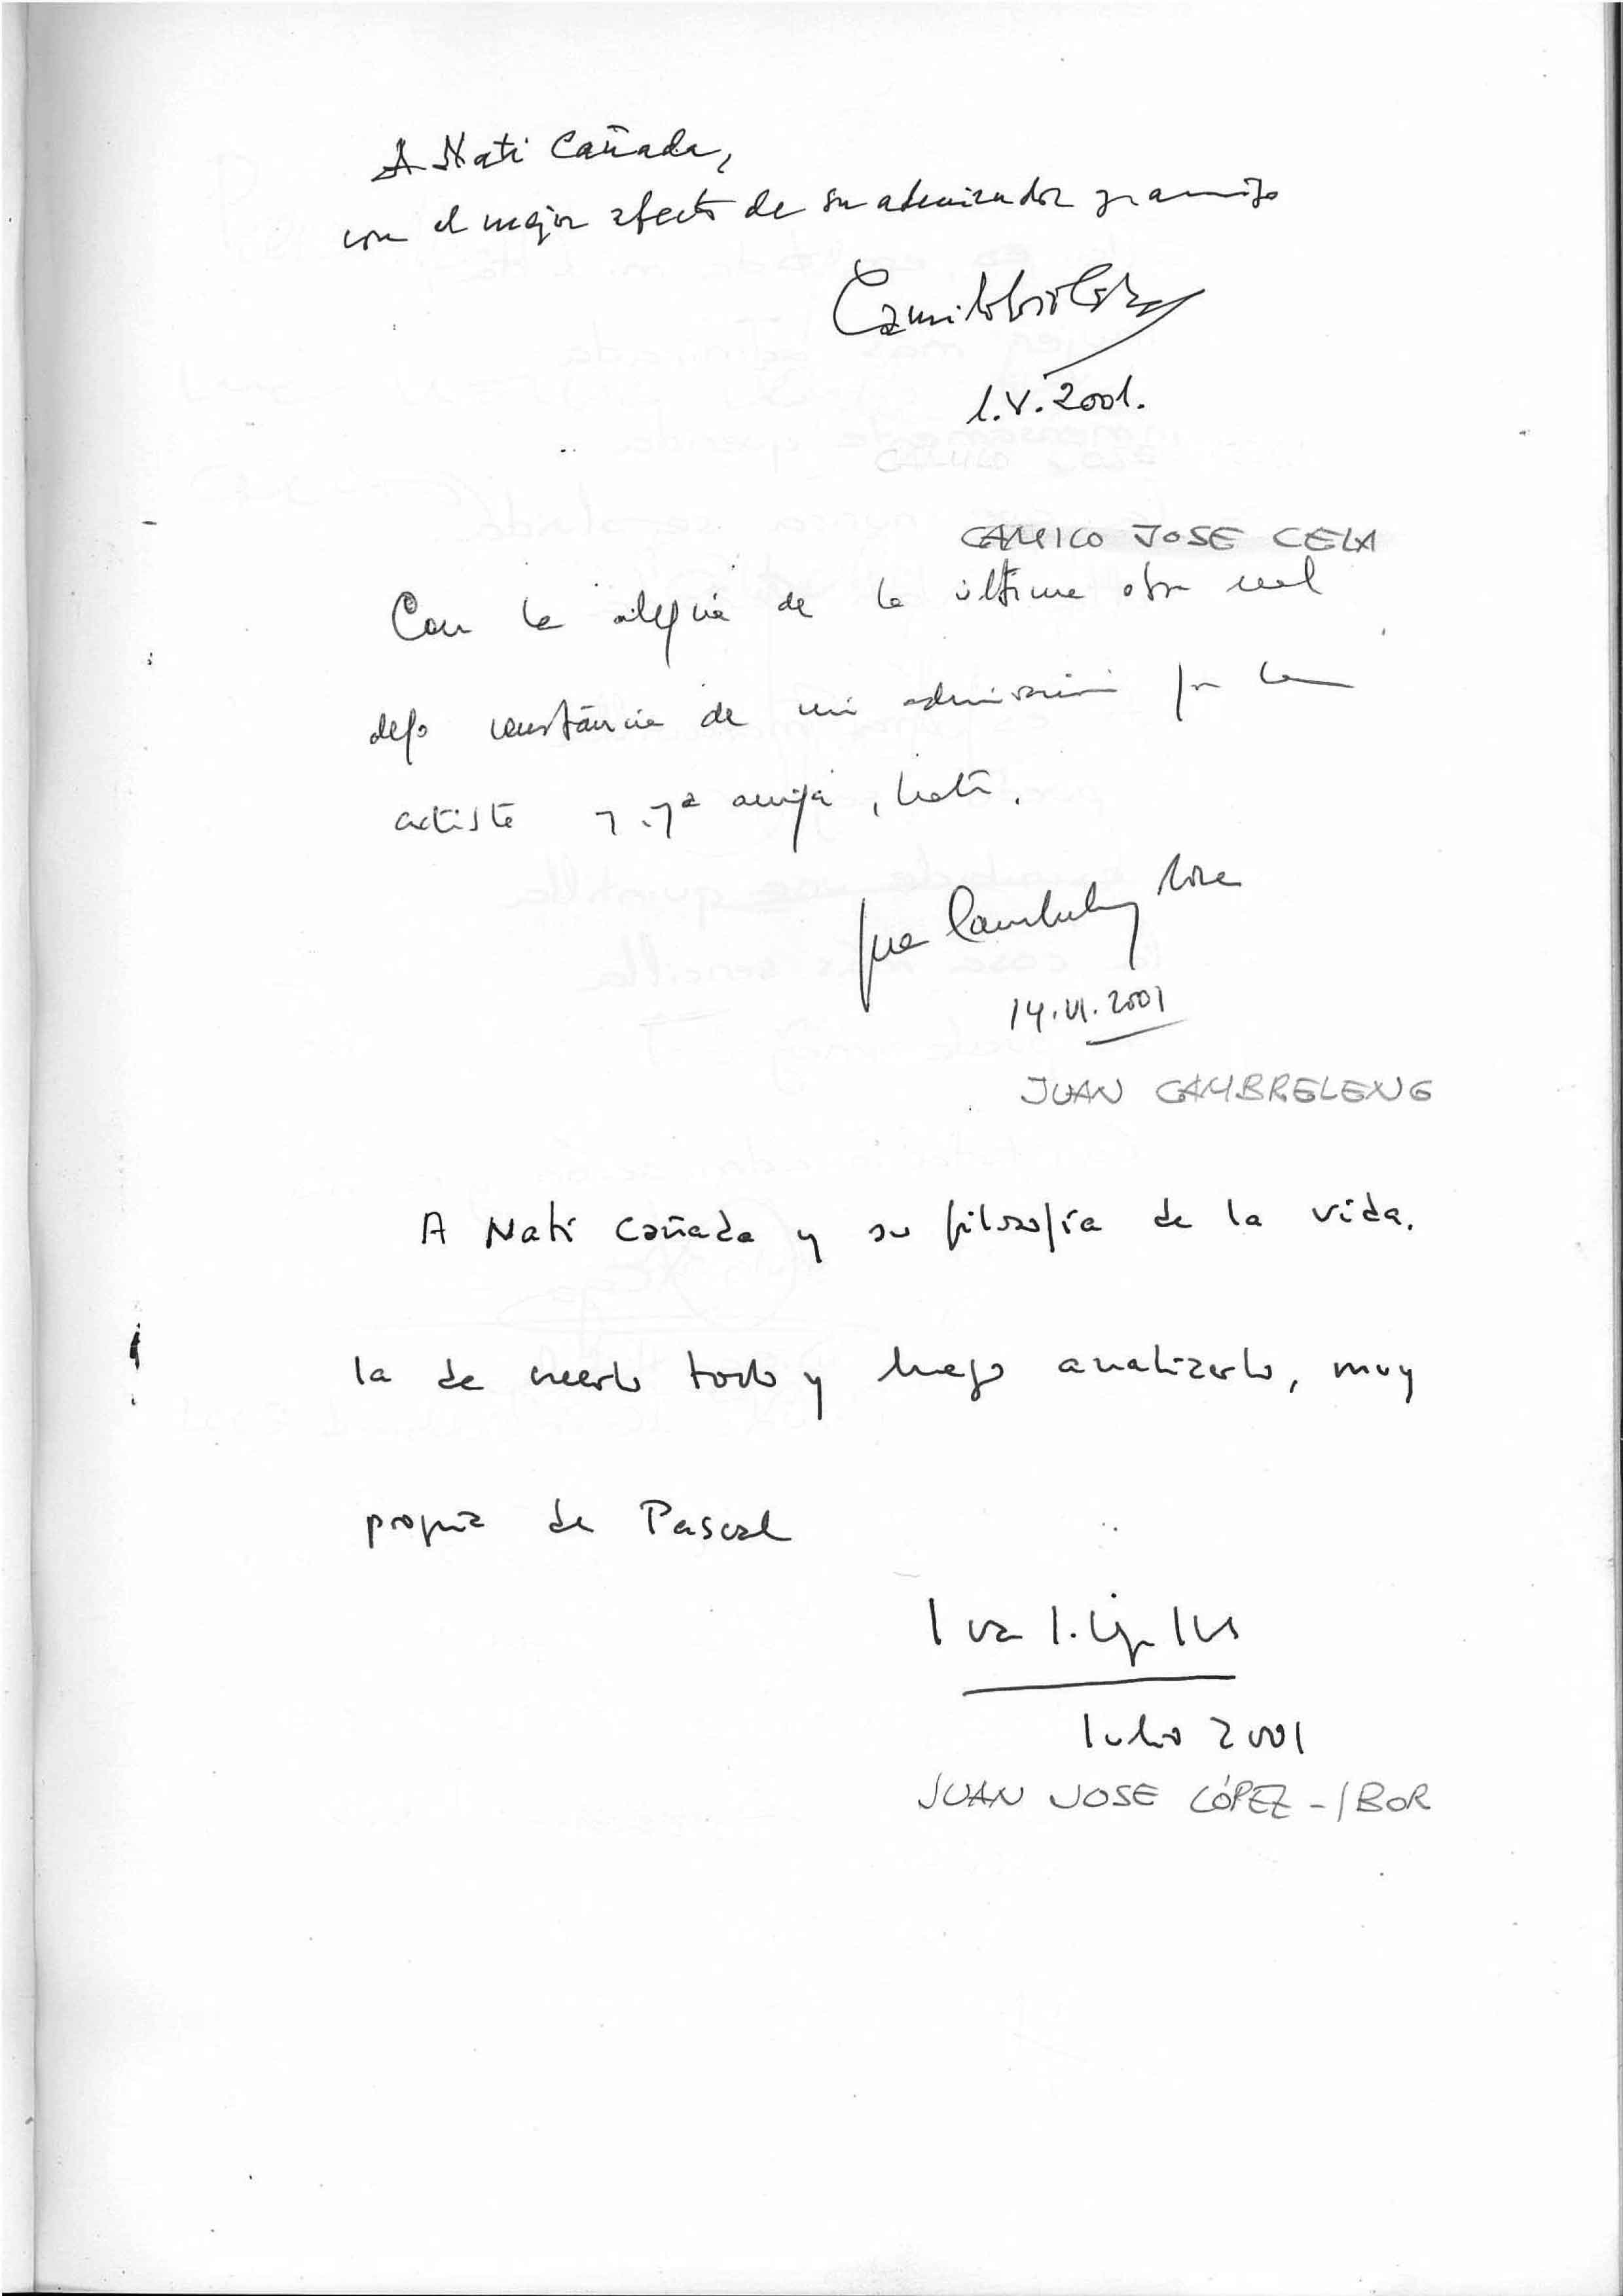 A Nati Cañada,
con el mejor afecto de su admirador y amigo
Camilo José Cela
1.V.2001.
CAMILO JOSE CELA
Con la alegría de la última obra
dejo constancia de mi admiración por la
artista y ya amiga, Nati.
Juan Cambreleng Roca
14.VI.2001
JUAN CAMBRELENG
A Nati Cañada y su filosofía de la vida,
la de creerlo todo y luego analizarlo, muy
propia de Pascal
Juan J. López Ibor
Julio 2001
JUAN JOSE LÓPEZ-IBOR